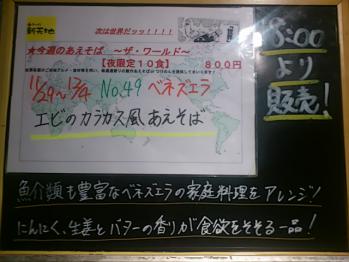 新天地
次は世界だッッ!!!!
★今週のあえそば ～ザ・ワールド～
【夜限定10食】 800円
11/29～12/4 No.49 ベネズエラ
エビのカラカス風あえそば
8:00
より
販売!
魚介類も豊富なベネズエラの家庭料理をアレンジ!
にんにく、生姜とバターの香りが食欲をそそる一品!